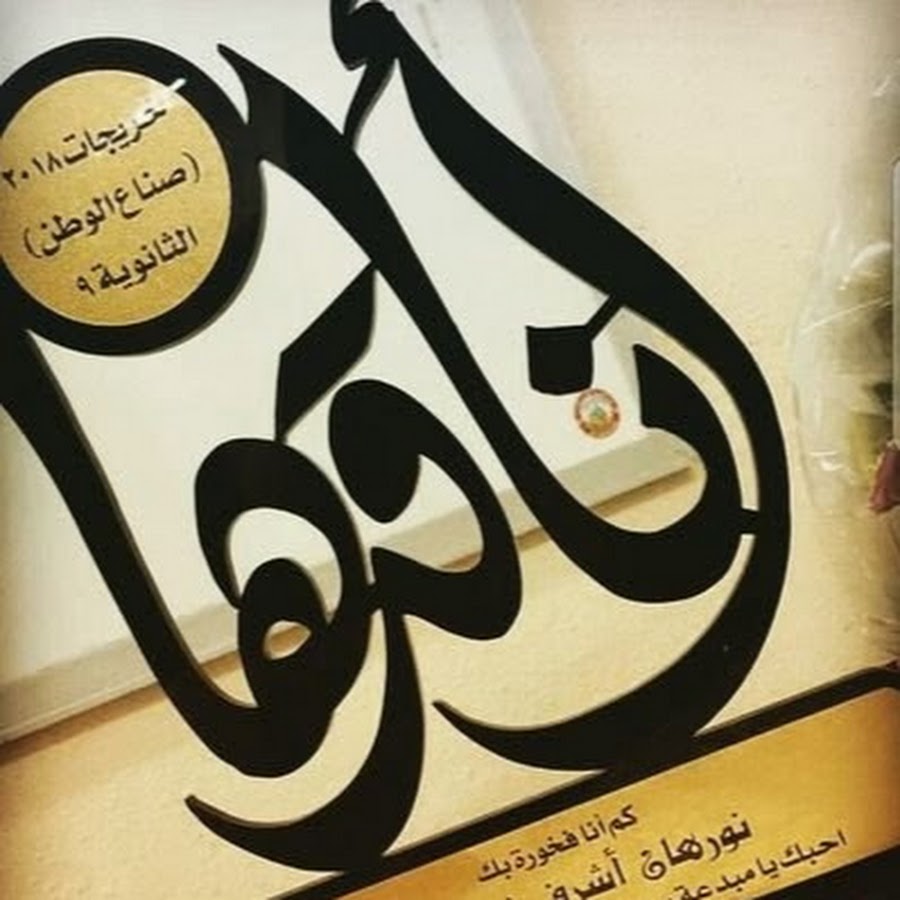 خريجات ٢٠١٨
(صناع الوطن)
الثانوية ٩
كم أنا فخورة بك
نورهان أشرف
احبك يا مبدعة